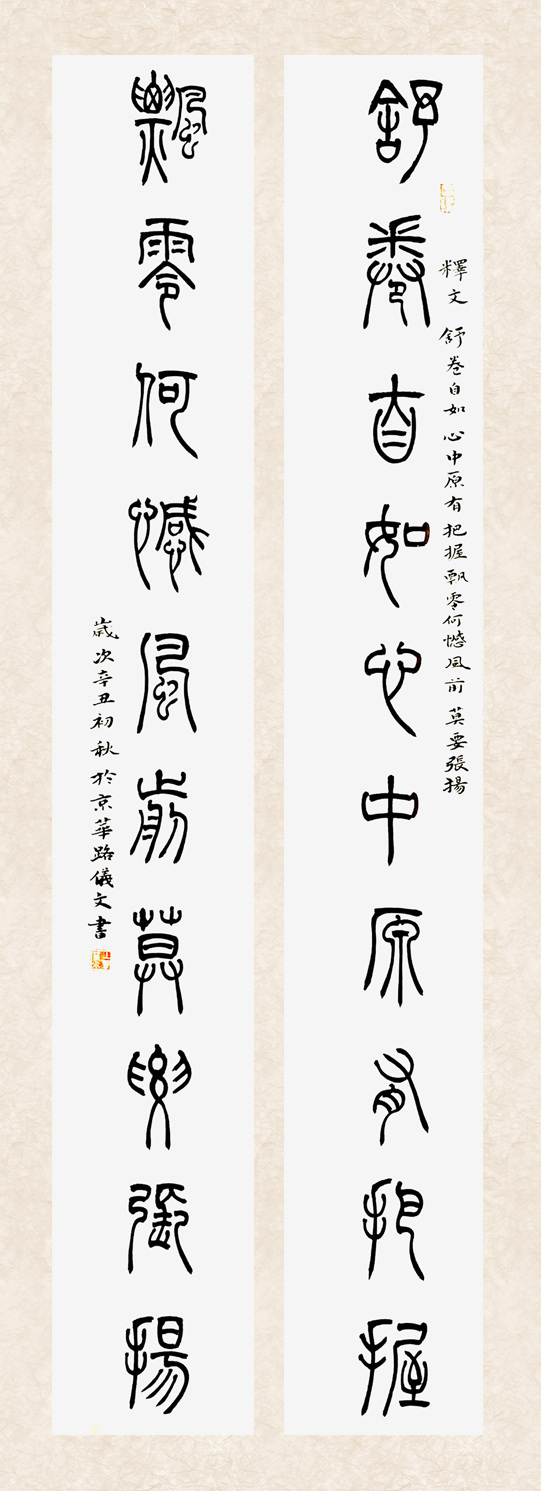 舒卷自如心中原有把握
釋文 舒卷自如心中原有把握飄零何憾風前莫要張揚
飄零何憾風前莫要張揚
歲次辛丑初秋於京華路儀文書